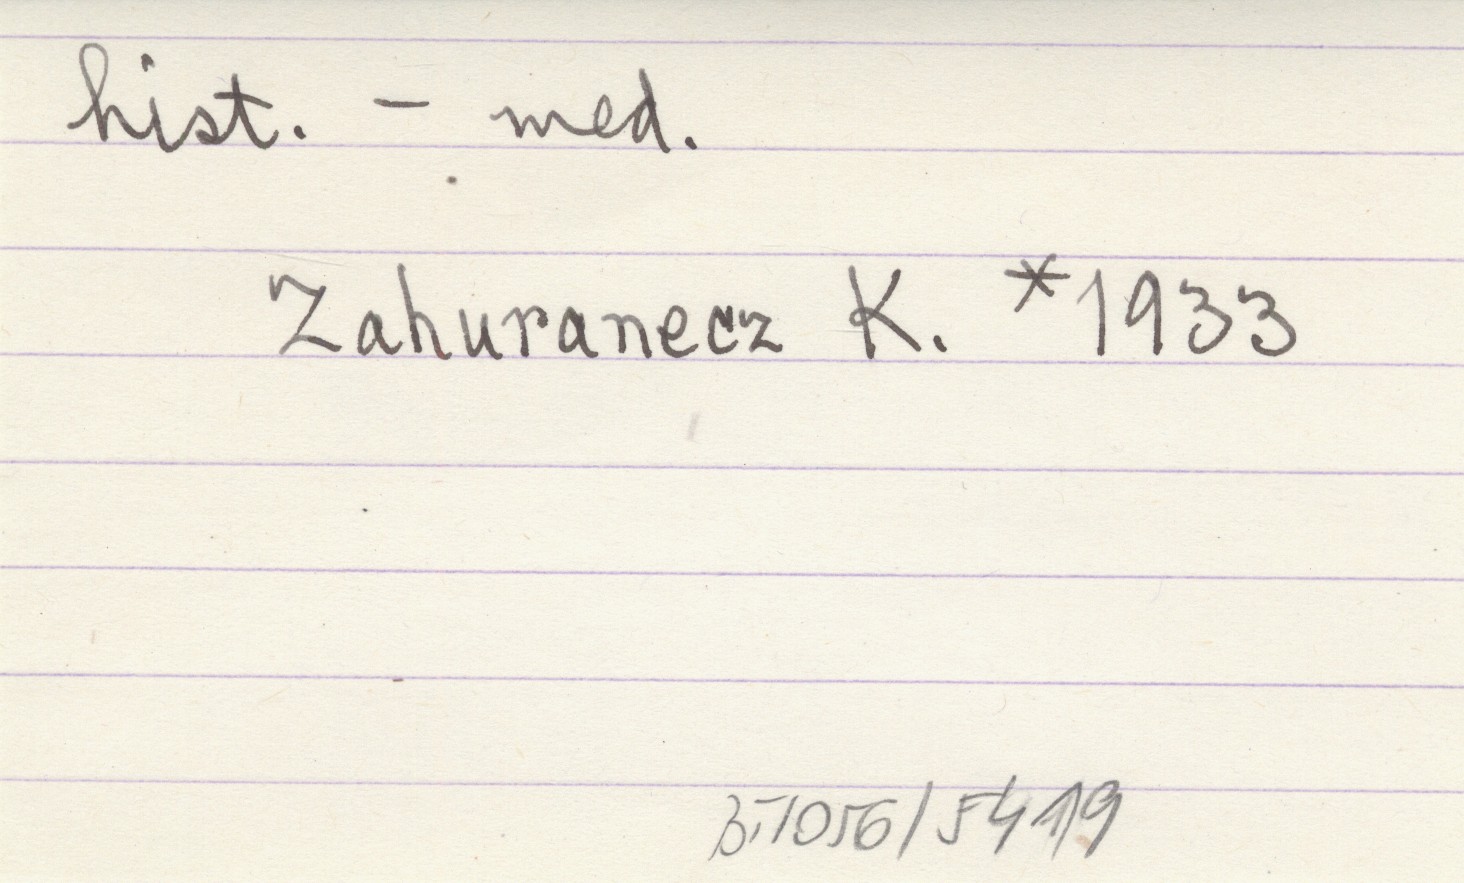 hist. - med.
Zahuranecz K. *1933
BT1056/5419